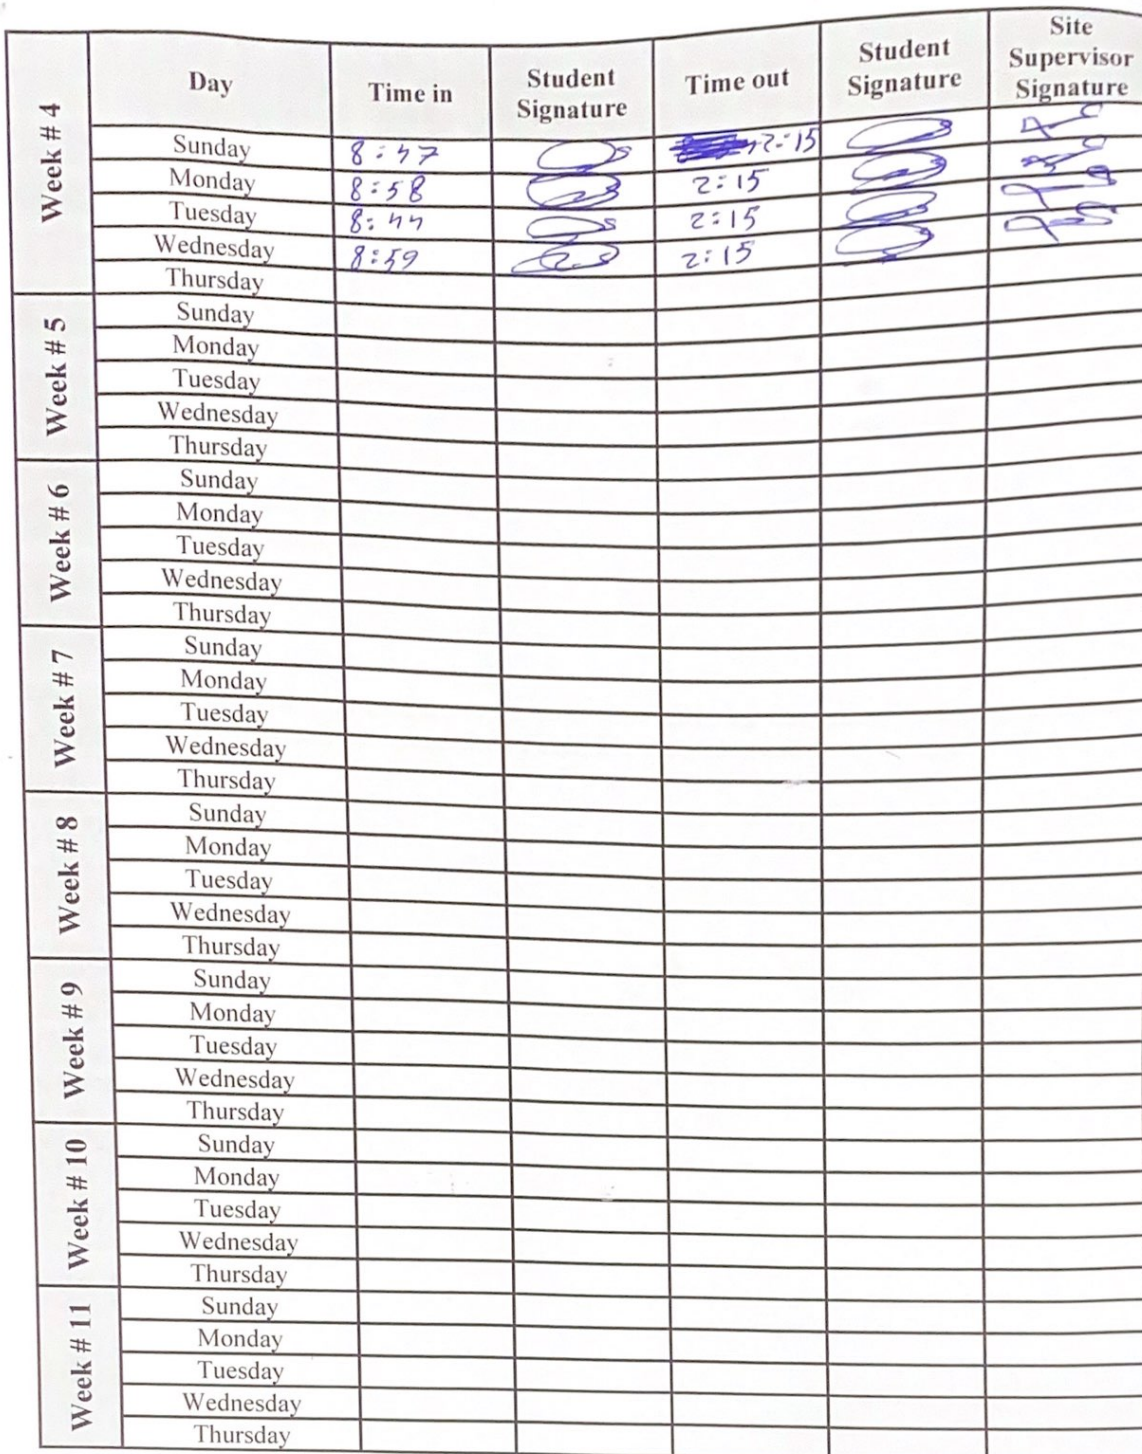 Week # 4 Day Time in Student Signature Time out Student Signature Site Supervisor Signature
Sunday 8:47 2:15
Monday 8:58 2:15
Tuesday 8:44 2:15
Wednesday 8:59 2:15
Thursday
Week # 5
Sunday
Monday
Tuesday
Wednesday
Thursday
Week # 6
Sunday
Monday
Tuesday
Wednesday
Thursday
Week # 7
Sunday
Monday
Tuesday
Wednesday
Thursday
Week # 8
Sunday
Monday
Tuesday
Wednesday
Thursday
Week # 9
Sunday
Monday
Tuesday
Wednesday
Thursday
Week # 10
Sunday
Monday
Tuesday
Wednesday
Thursday
Week # 11
Sunday
Monday
Tuesday
Wednesday
Thursday